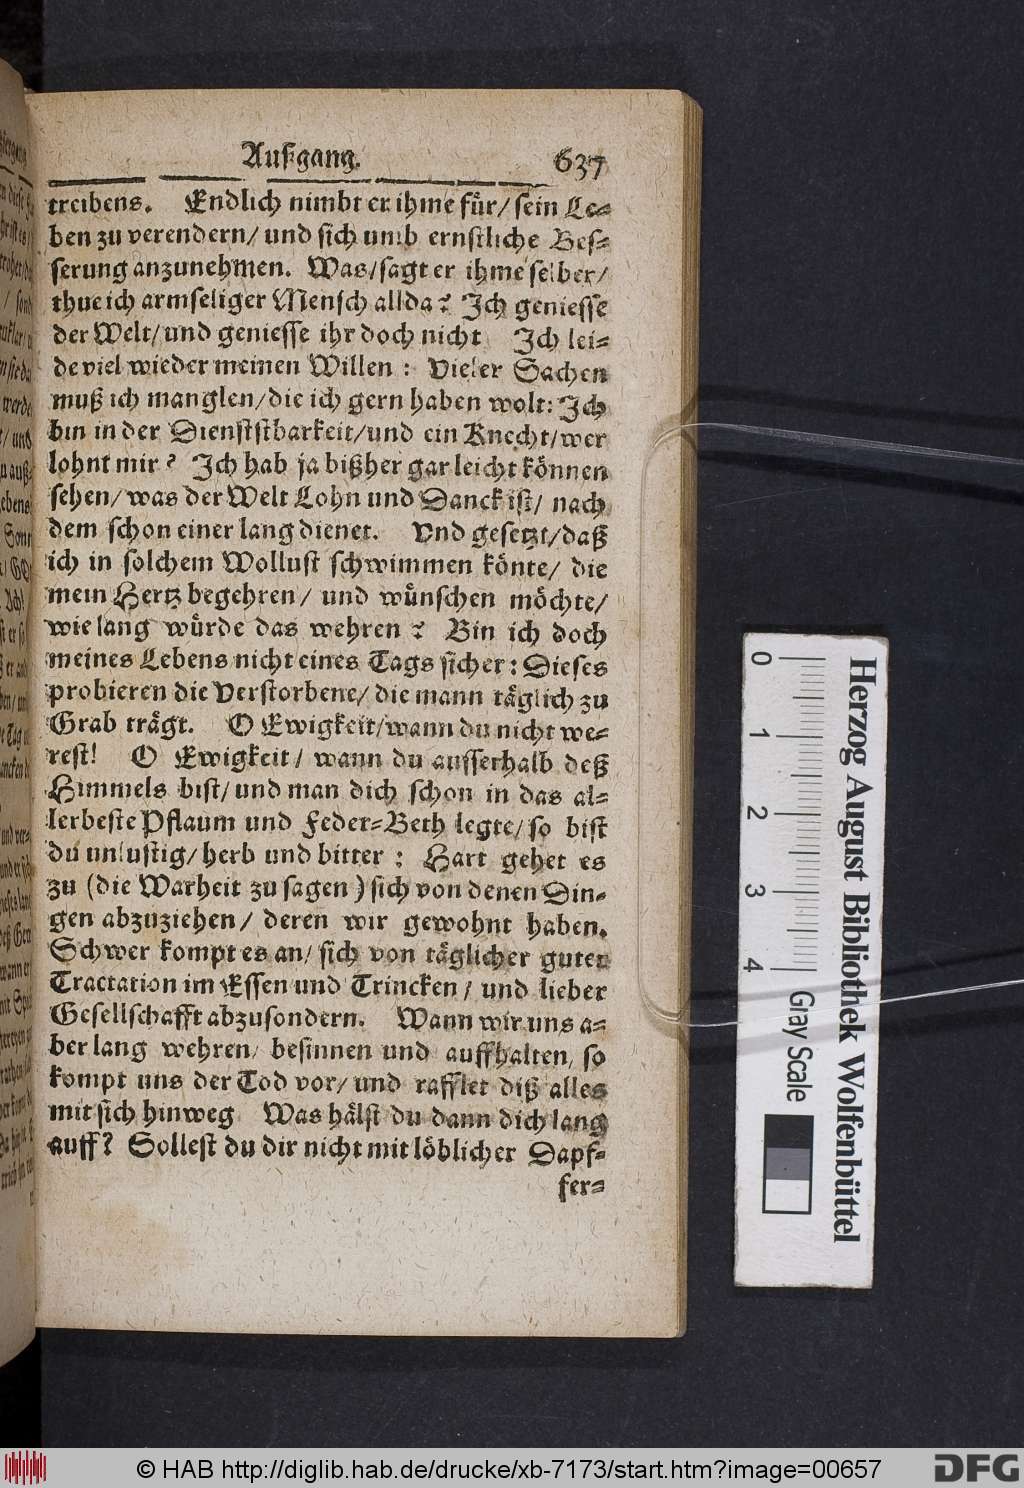 Außgang. 637
treibens. Endlich nimbt er ihme für/ sein Le-
ben zu verendern/ und sich umb ernstliche Bes-
serung anzunehmen. Was/ sagt er ihme selber/
thue ich armseliger Mensch allda? Ich geniesse
der Welt/ und geniesse ihr doch nicht Ich lei-
de viel wieder meinen Willen: Vieler Sachen
muß ich manglen/ die ich gern haben wolt: Ich
bin in der Dienststbarkeit/ und ein Knecht/ wer
lohnt mir? Ich hab ja bißher gar leicht können
sehen/ was der Welt Lohn und Danck ist/ nach
dem schon einer lang dienet. Vnd gesetzt/ daß
ich in solchem Wollust schwimmen könte/ die
mein Hertz begehren/ und wünschen möchte/
wie lang würde das wehren? Bin ich doch
meines Lebens nicht eines Tags sicher: Dieses
probieren die Verstorbene/ die mann täglich zu
Grab trägt. O Ewigkeit/ wann du nicht we-
rest! O Ewigkeit/ wann du ausserhalb deß
Himmels bist/ und man dich schon in das al-
lerbeste Pflaum und Feder-Beth legte/ so bist
du unlustig/ herb und bitter: Hart gehet es
zu (die Warheit zu sagen) sich von denen Din-
gen abzuziehen/ deren wir gewohnt haben.
Schwer kompt es an/ sich von täglicher guter
Tractation im Essen und Trincken/ und lieber
Gesellschafft abzusondern. Wann wir uns a-
ber lang wehren/ besinnen und auffhalten, so
kompt uns der Tod vor/ und rafflet diß alles
mit sich hinweg Was hälst du dann dich lang
auff? Sollest du dir nicht mit löblicher Dapf-
fer-
Herzog August Bibliothek Wolfenbüttel
0 1 2 3 4 Gray Scale
© HAB http://diglib.hab.de/drucke/xb-7173/start.htm?image=00657
DFG